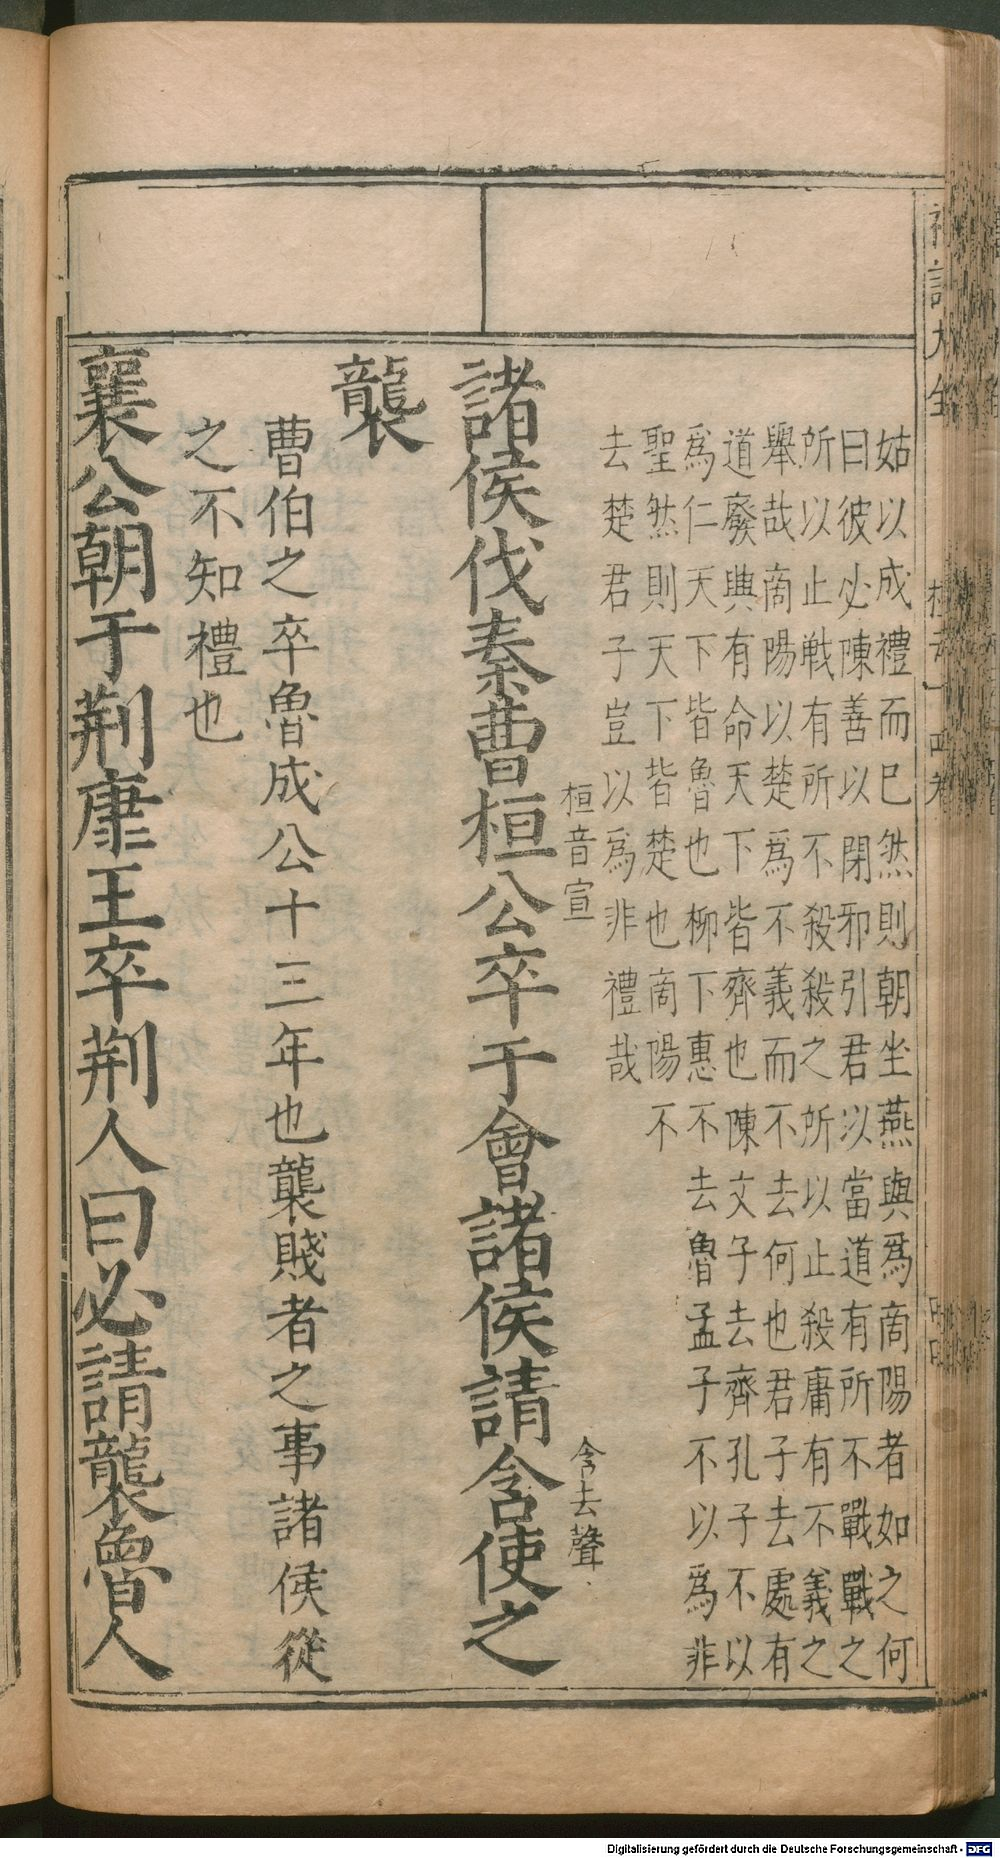 姑以成禮而已然則朝坐燕與爲商陽者如之何
曰彼必陳善以閉邪引君以當道有所不戰戰之
所以止戰有所不殺殺之所以止殺庸有不義之
舉哉商陽以楚爲不義而不去何也君子去處有
道廢興有命天下皆齊也陳文子去齊孔子不以
爲仁天下皆魯也柳下惠不去魯孟子不以爲非
聖然則天下皆楚也商陽不
去楚君子豈以爲非禮哉
諸侯伐秦曹桓公卒于會諸侯請含使之
桓音宣
含去聲
襲
曹伯之卒魯成公十三年也襲賤者之事諸侯從
之不知禮也
襄公朝于荆康王卒荆人曰必請襲魯人
Digitalisierung gefördert durch die Deutsche Forschungsgemeinschaft - DFG